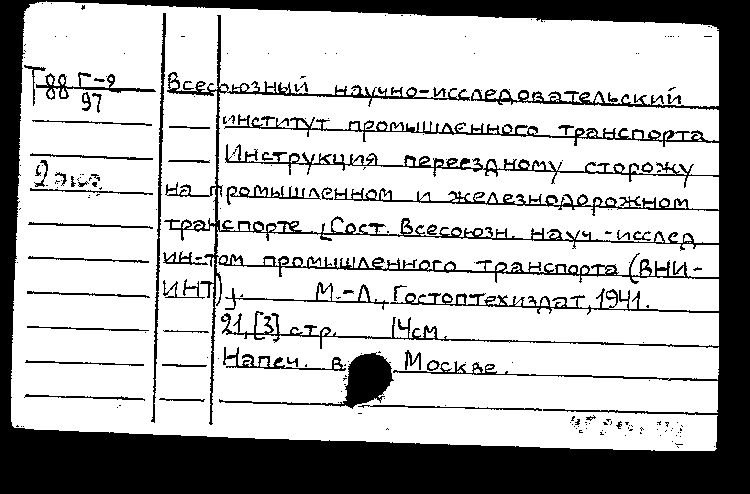 Т88 Г-9 Всесоюзный научно-исследовательский
97
институт промышленного транспорта
Инструкция переездному сторожу
2 экз.
на промышленном и железнодорожном
транспорте [Сост. Всесоюзн. науч.-исслед
ин-том промышленного транспорта (ВНИ-
ИНТ)]. М.-Л., Гостоптехиздат, 1941.
21, [3] стр. 14см.
Напеч. в Москве.